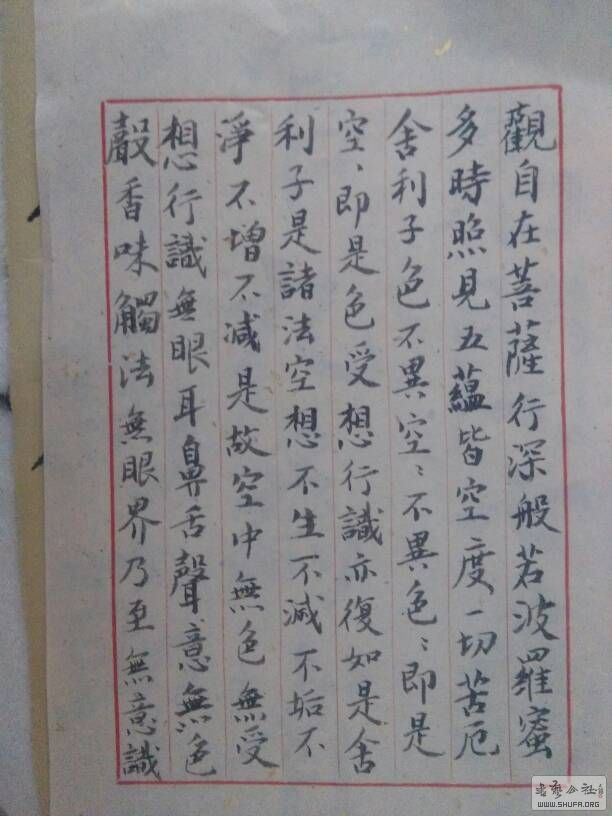 觀自在菩薩行深般若波羅蜜
多時照見五蘊皆空度一切苦厄
舍利子色不異空〻不異色〻即是
空〻即是色受想行識亦復如是舍
利子是諸法空想不生不減不垢不
淨不增不減是故空中無色無受
想行識無眼耳鼻舌聲意無色
聲香味觸法無眼界乃至無意識
WWW.SHUFA.ORG